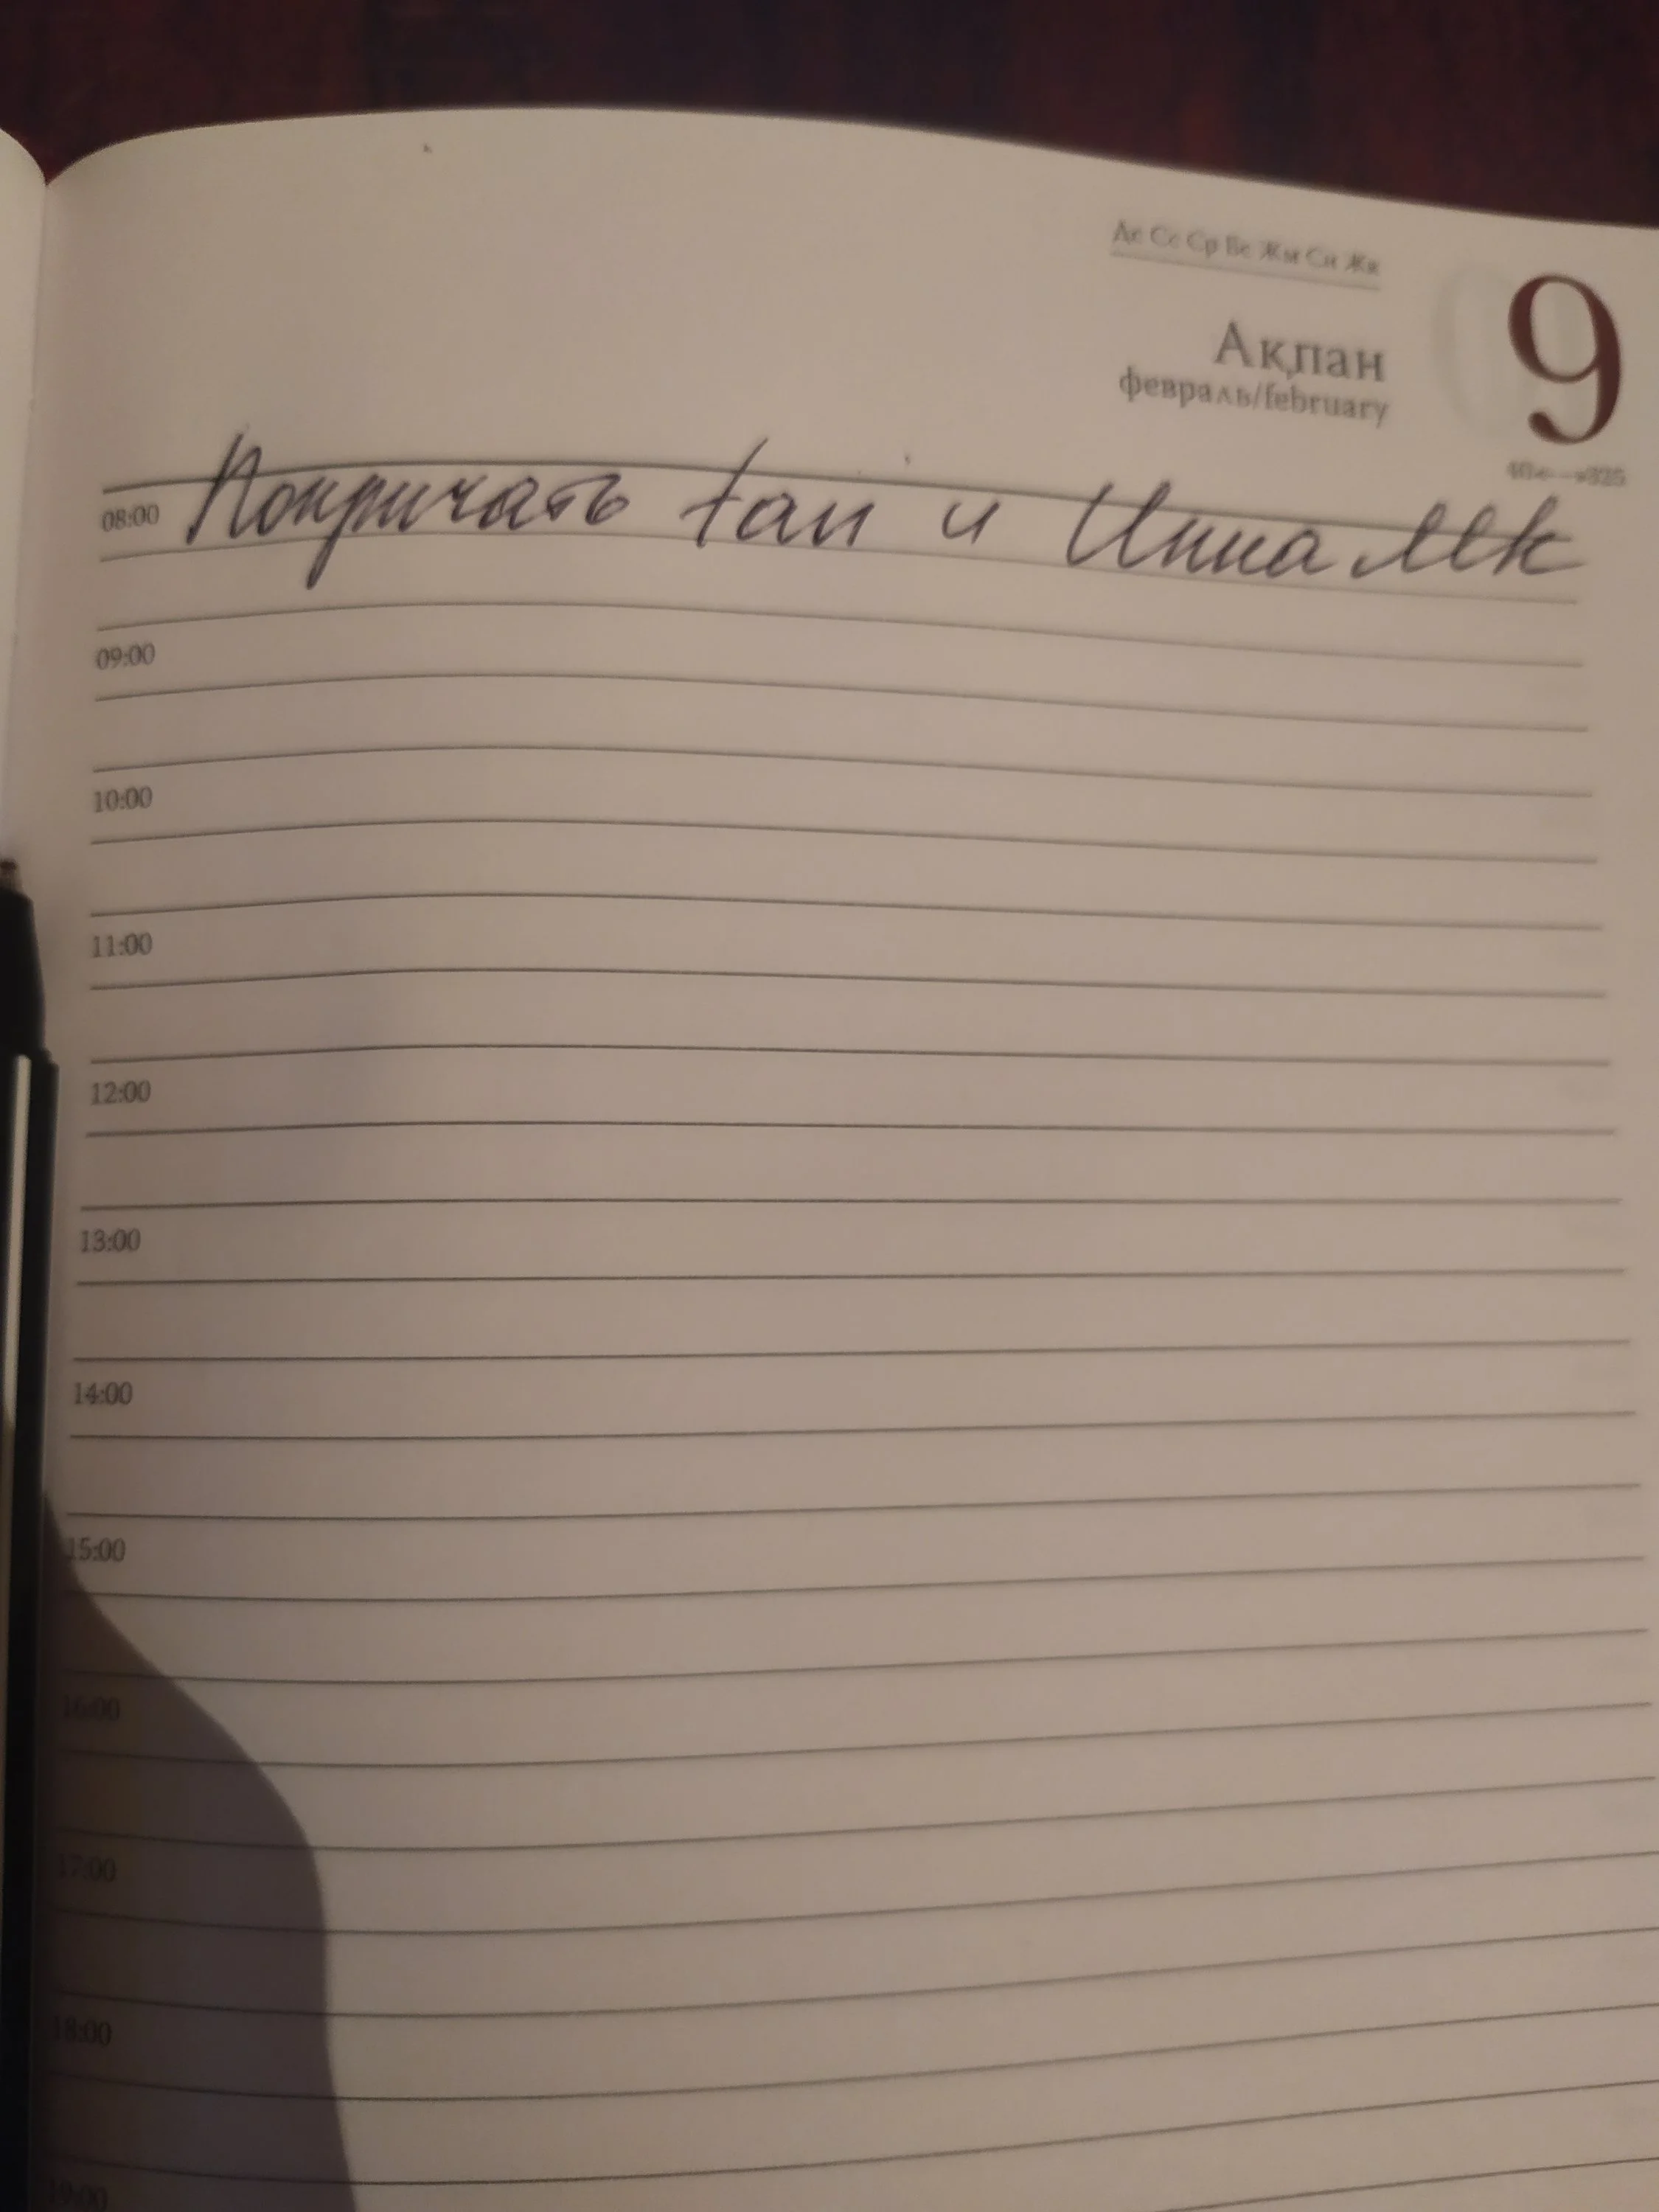 Де Се Ср Бе Жм Сн Жк
Ақпан
февраль/february
9
08:00 Покричать tan и Инна МК
09:00
10:00
11:00
12:00
13:00
14:00
15:00
16:00
17:00
18:00
19:00